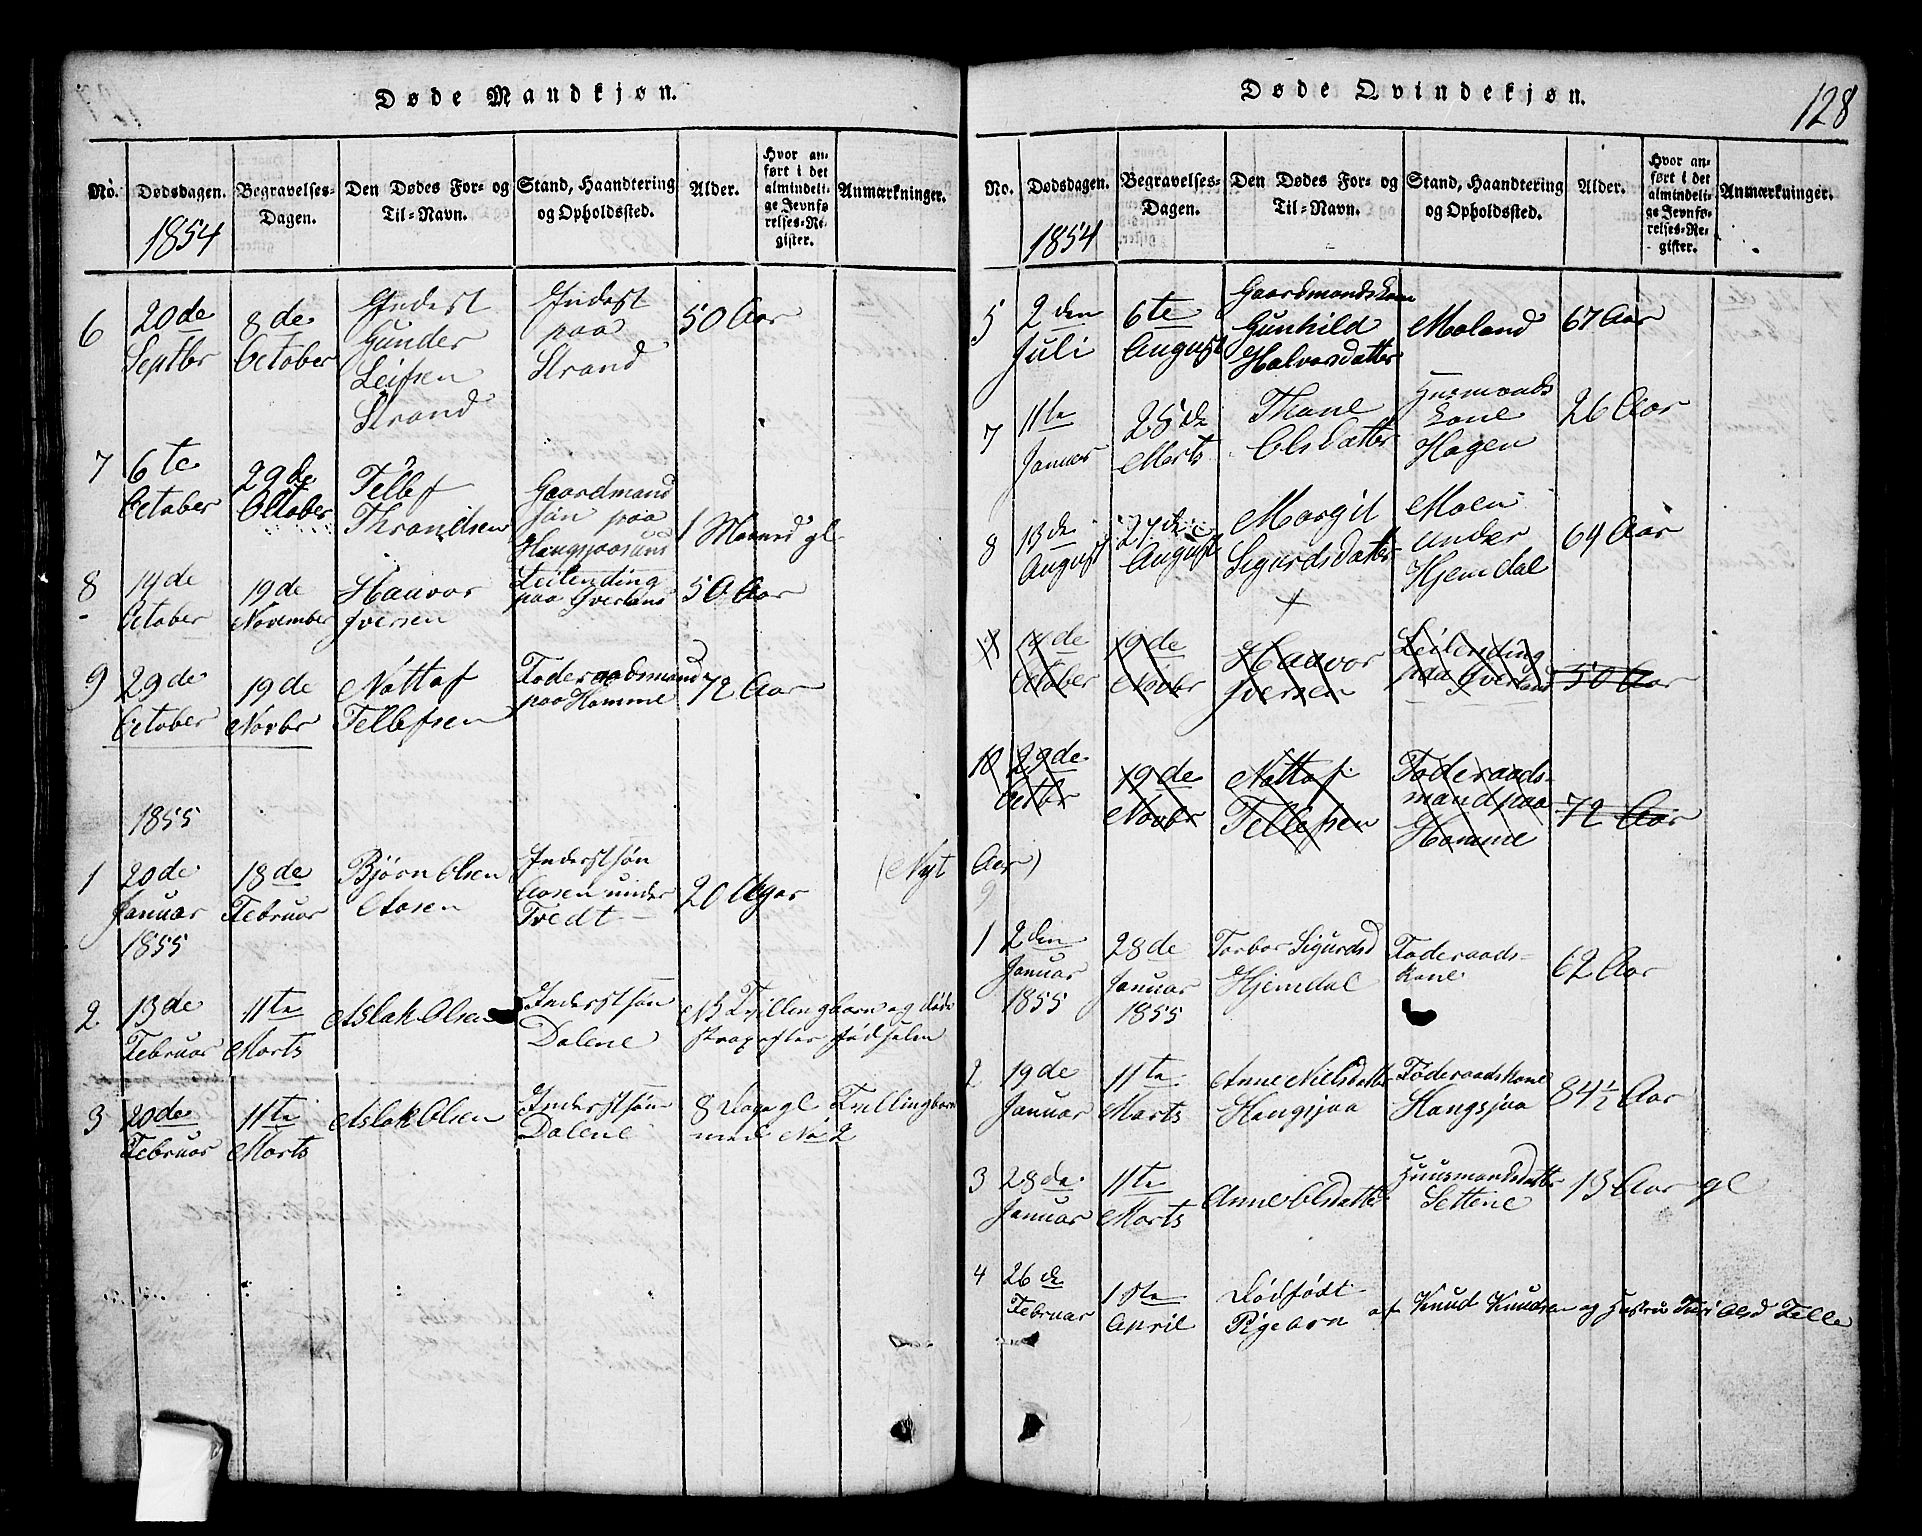 Døde Mandkjøn.
No. Dødsdagen. Begravelses-Dagen. Den Dødes For- og Til-Navn. Stand, Haandtering og Opholdssted. Alder. Hvor anført i det almindelige Jevnførelses-Register. Anmærkninger.
1854
6 20de Septbr 8de October Inderst Gunder Leifsen Strand Inderst paa Strand 50 Aar
7 6te October 29de October Tellef Thrandsen Gaardmand søn paa Hangsjaasund 1 Maaned gl.
8 14de October 19de November Haavor Iversen Leilending paa Qverland 50 Aar
9 29de October 19de Novbr Nottof Tellefsen Føderaadsmand paa Homme 72 Aar
1855
1 20de Januar 1855 18de Februar Bjørn Olsen Aasen Inderstsøn Aasen under Tvedt 20 Ugar
2 13de Februar 11te Marts Aslak Olsen Inderstsøn Dalene NB Tvillingbarn og døde strax efter fødselen
3 20de Februar 11te Marts Aslak Olsen Inderstsøn Dalene 8 Dage gl Tvillingbarn med No 2
Døde Qvindekjøn.
128
No. Dødsdagen. Begravelses-Dagen. Den Dødes For- og Til-Navn. Stand, Haandtering og Opholdssted. Alder. Hvor anført i det almindelige Jevnførelses-Register. Anmærkninger.
1854
5 2den Juli 6te August Gaardmandskone Gunhild Halvorsdatter Moland 67 Aar
7 11te Januar 25de Marts Thone Olsdatter Husmands kone Hagen 26 Aar
8 13de August 27de August Margit Sigurdsdatter Moen under Hjemdal 64 Aar
+
9 14de October 19de Novbr Haavor Iversen Leilending paa Qverland 50 Aar
10 29de Octbr 19de Novbr Nottof Tellefsen Føderaadsmand paa Homme 72 Aar
(Nyt Aar)
1 2den Januar 1855 28de Januar 1855 Torbor Sigurdsd Hjemdal Føderaads-kone 62 Aar
2 19de Januar 11te Marts Anne Nielsdatter Hangsjaa Føderaadskone Hangsjaa 84½ Aar
3 28de Januar 11te Marts Anne Olsdatter Huusmandsdatter Settene 13 Aar gl
4 26de Februar 1ste April Dødfødt Pigebarn af Knud Knudsen og Hustru Turi Olsd Felle